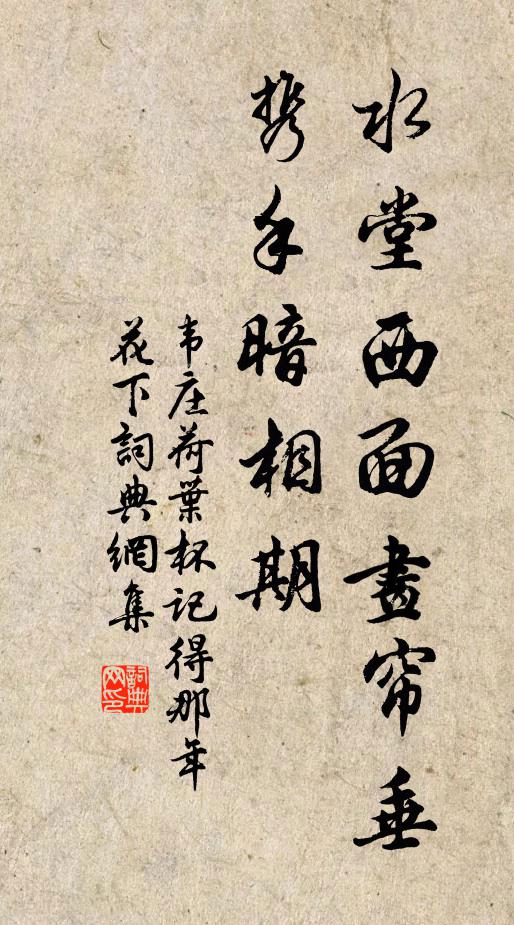 水堂西面畫帘垂
携手暗相期
韦庄荷葉杯记得那年
花下詞典網集
詞典网印